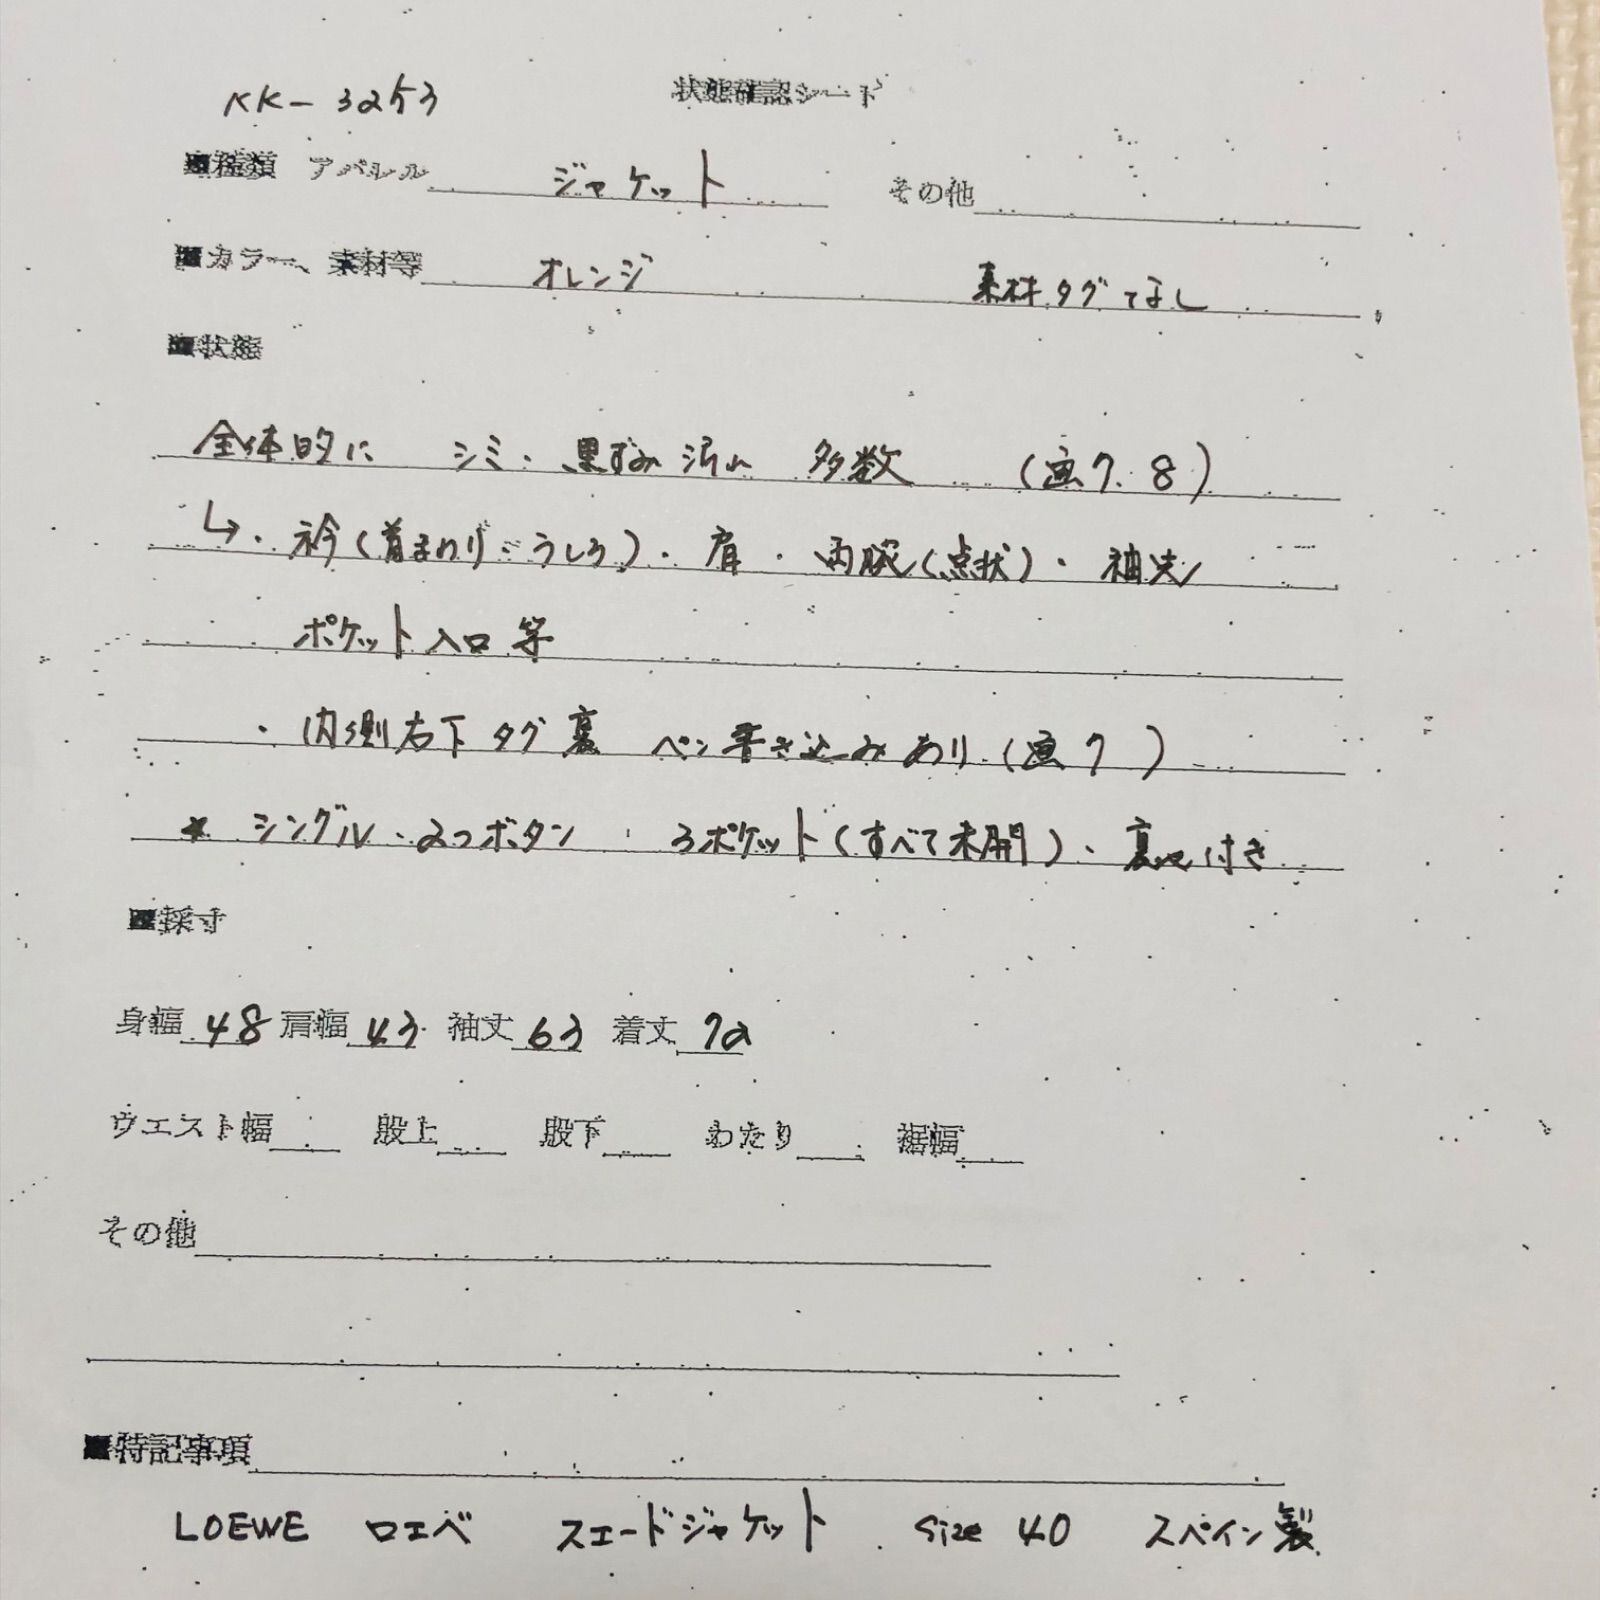 KK-3253
状態確認シート
■種類 アパレル ジャケット その他
■カラー、素材等 オレンジ 素材タグなし
■状態
全体的に シミ・黒ずみ汚れ 多数 (画7.8)
↳・衿(首まわり・うしろ)・肩・両腕(点状)・袖先
ポケット入口等
・内側右下タグ裏 ペン書き込みあり(画7)
* シングル・2つボタン・3ポケット(すべて未開)・裏地付き
■採寸
身幅 48 肩幅 43 袖丈 63 着丈 72
ウエスト幅 股上 股下 わたり 裾幅
その他
■特記事項
LOEWE ロエベ スエードジャケット size 40 スペイン製